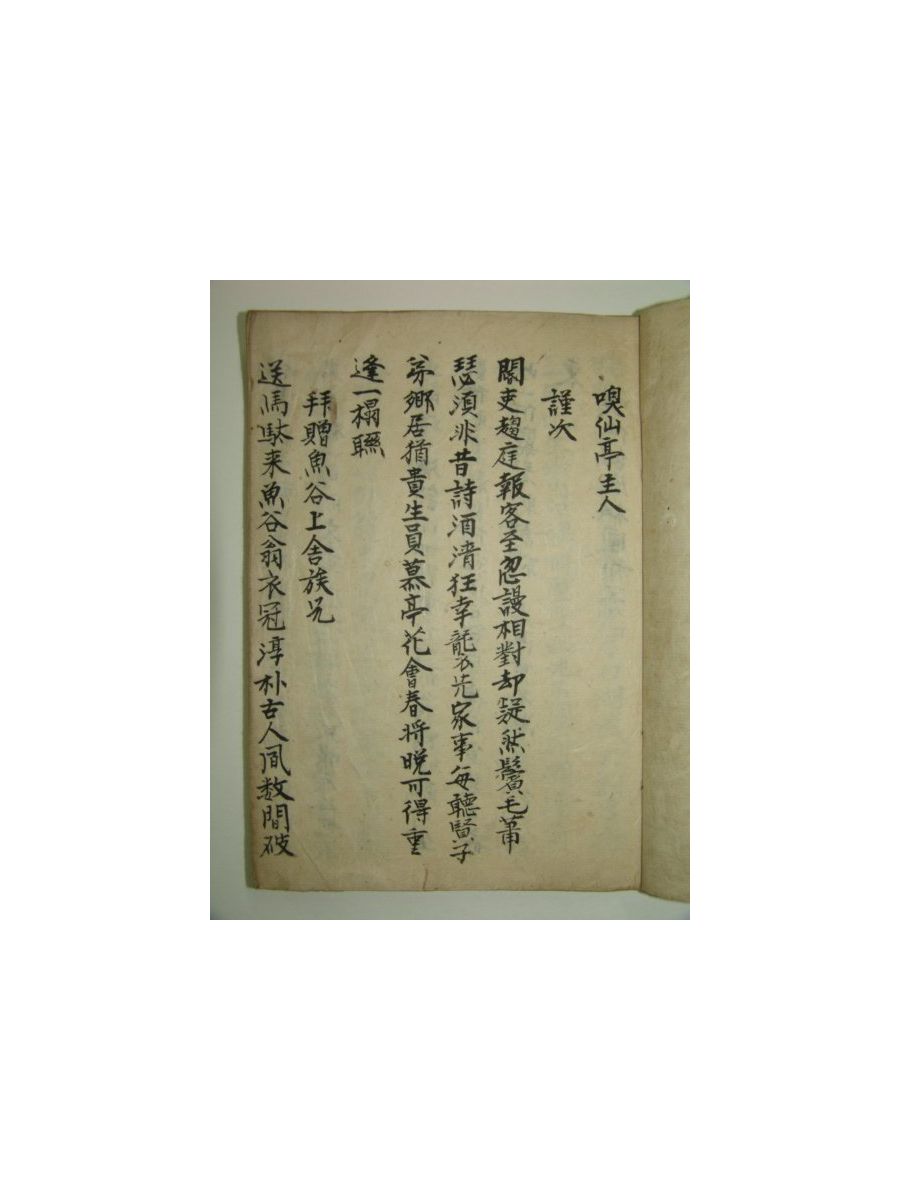 嗅仙亭主人
謹次
閽吏趨庭報客至忽謾相對却疑然鬢毛蕭
瑟須非昔詩酒淸狂幸襲先家事每聽賢子
弟鄕居猶貴生員慕亭花會春將晩可得重
逢一榻聯
拜贈魚谷上舍族兄
送馬駄来魚谷翁衣冠淳朴古人風数間破